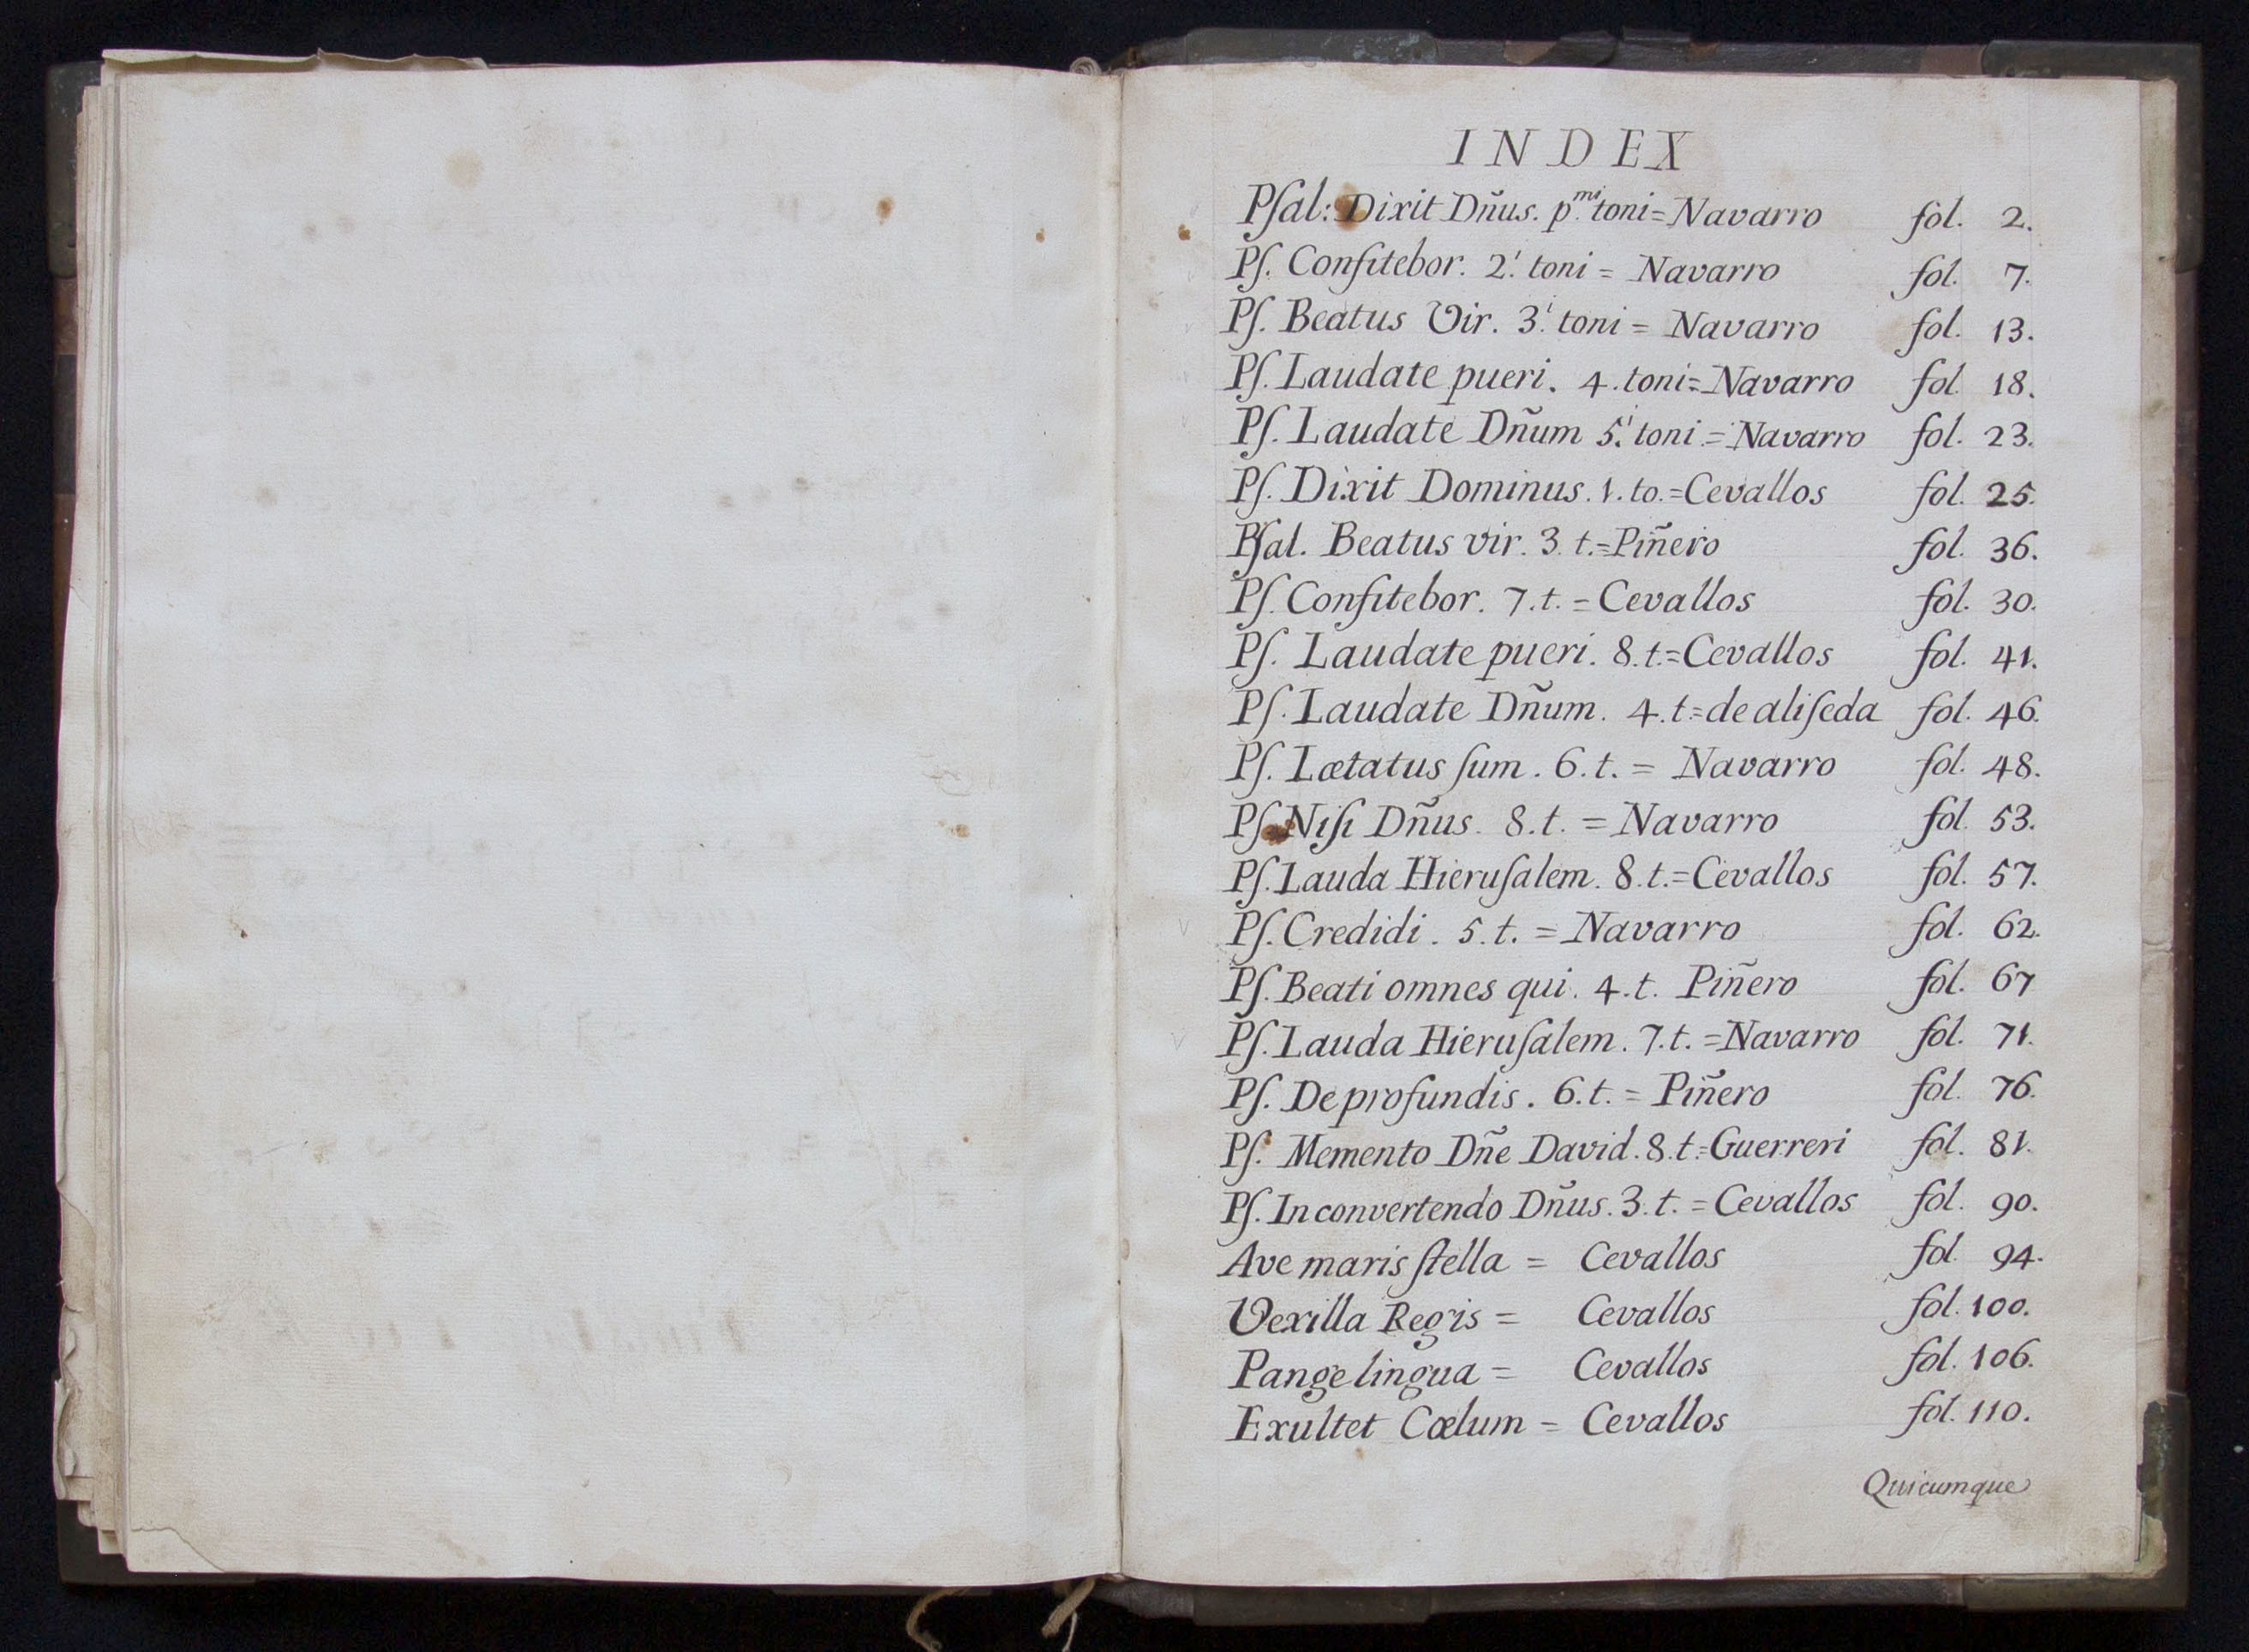 INDEX
Pſal: Dixit Dñus. p.mi toni = Navarro fol. 2.
Pſ. Confitebor. 2.i toni = Navarro fol. 7.
Pſ. Beatus Vir. 3.i toni = Navarro fol. 13.
Pſ. Laudate pueri. 4. toni = Navarro fol. 18.
Pſ. Laudate Dñum 5.i toni = Navarro fol. 23.
Pſ. Dixit Dominus. 1. to. = Cevallos fol. 25.
Pſal. Beatus vir. 3. t. = Piñero fol. 36.
Pſ. Confitebor. 7. t. = Cevallos fol. 30.
Pſ. Laudate pueri. 8. t. = Cevallos fol. 41.
Pſ. Laudate Dñum. 4. t. = de aliſeda fol. 46.
Pſ. Lætatus ſum. 6. t. = Navarro fol. 48.
Pſ. Niſi Dñus. 8. t. = Navarro fol. 53.
Pſ. Lauda Hieruſalem. 8. t. = Cevallos fol. 57.
Pſ. Credidi. 5. t. = Navarro fol. 62.
Pſ. Beati omnes qui. 4. t. Piñero fol. 67
Pſ. Lauda Hieruſalem. 7. t. = Navarro fol. 71.
Pſ. De profundis. 6. t. = Piñero fol. 76.
Pſ. Memento Dñe David. 8. t. = Guerreri fol. 81.
Pſ. In convertendo Dñus. 3. t. = Cevallos fol. 90.
Ave maris ſtella = Cevallos fol. 94.
Vexilla Regis = Cevallos fol. 100.
Pange lingua = Cevallos fol. 106.
Exultet Cælum = Cevallos fol. 110.
Quicumque